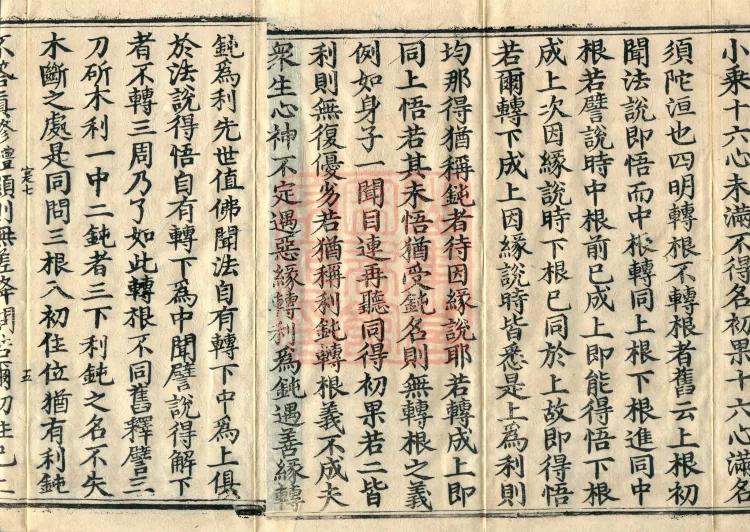 小乘十六心未滿不得名初果十六心滿名
須陀洹也四明轉根不轉根者舊云上根初
聞法說即悟而中根轉同上根下根進同中
根若譬說時中根前已成上即能得悟下根
成上次因緣說時下根已同於上故即得悟
若爾轉下成上因緣說時皆悉是上為利則
均那得猶稱鈍者待因緣說耶若轉成上即
同上悟若其未悟猶受鈍名則無轉根之義
例如身子一聞目連再聽同得初果若二皆
利則無復優劣若猶稱利鈍轉根義不成夫
衆生心神不定遇惡緣轉利為鈍遇善緣轉
鈍為利先世值佛聞法自有轉下中為上俱
於法說得悟自有轉下為中聞譬說得解下
者不轉三周乃了如此轉根不同舊釋譬三
刀斫木利一中二鈍者三下利鈍之名不失
木斷之處是同問三根入初住位猶有利鈍
五